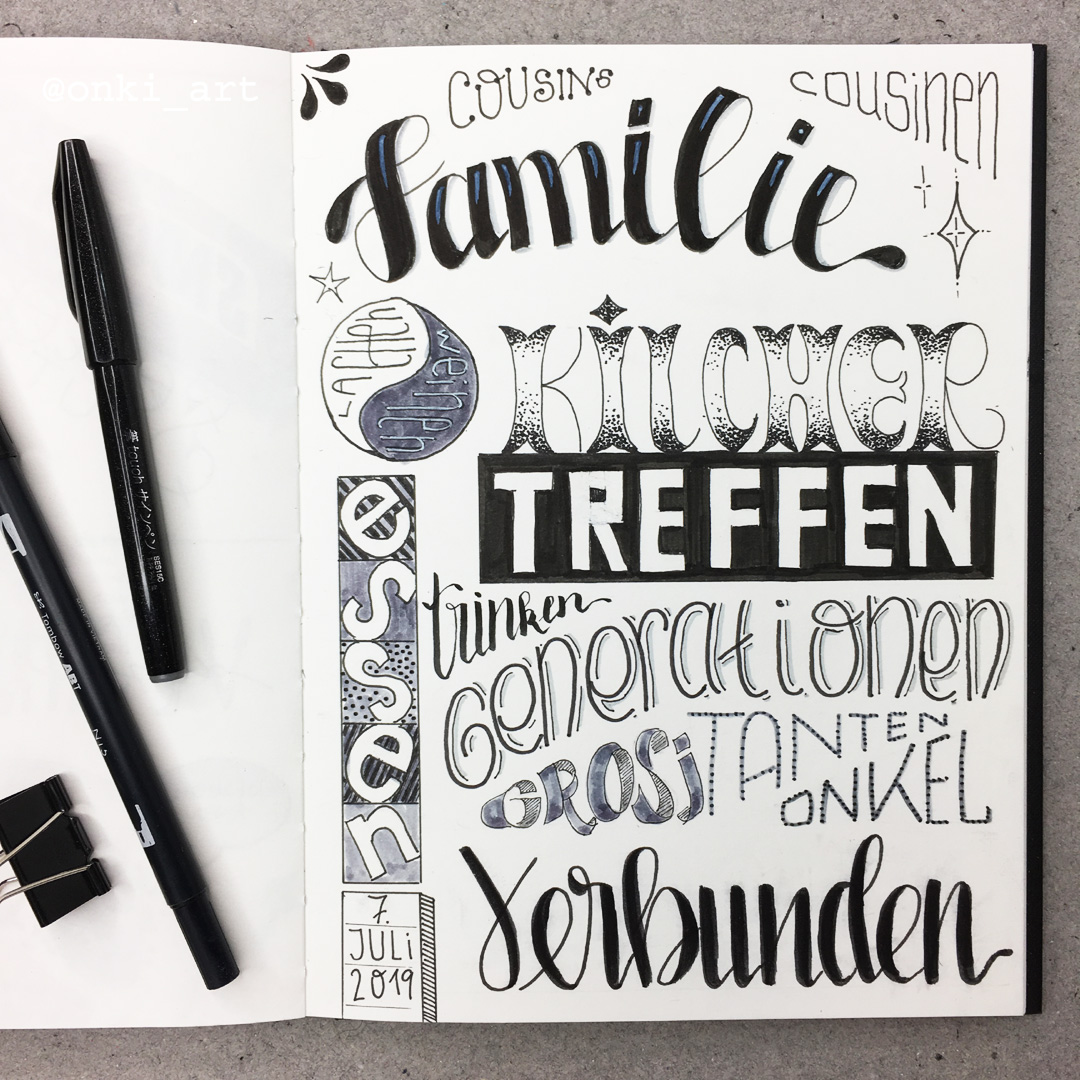 @onki_art
cousins
cousinen
familie
lachen
weinen
KILCHER
TREFFEN
essen
trinken
Generationen
GROSI
TANTEN
ONKEL
Verbunden
7.
JULI
2019
touch サインペン
SES15C
Tombow ABT
N15